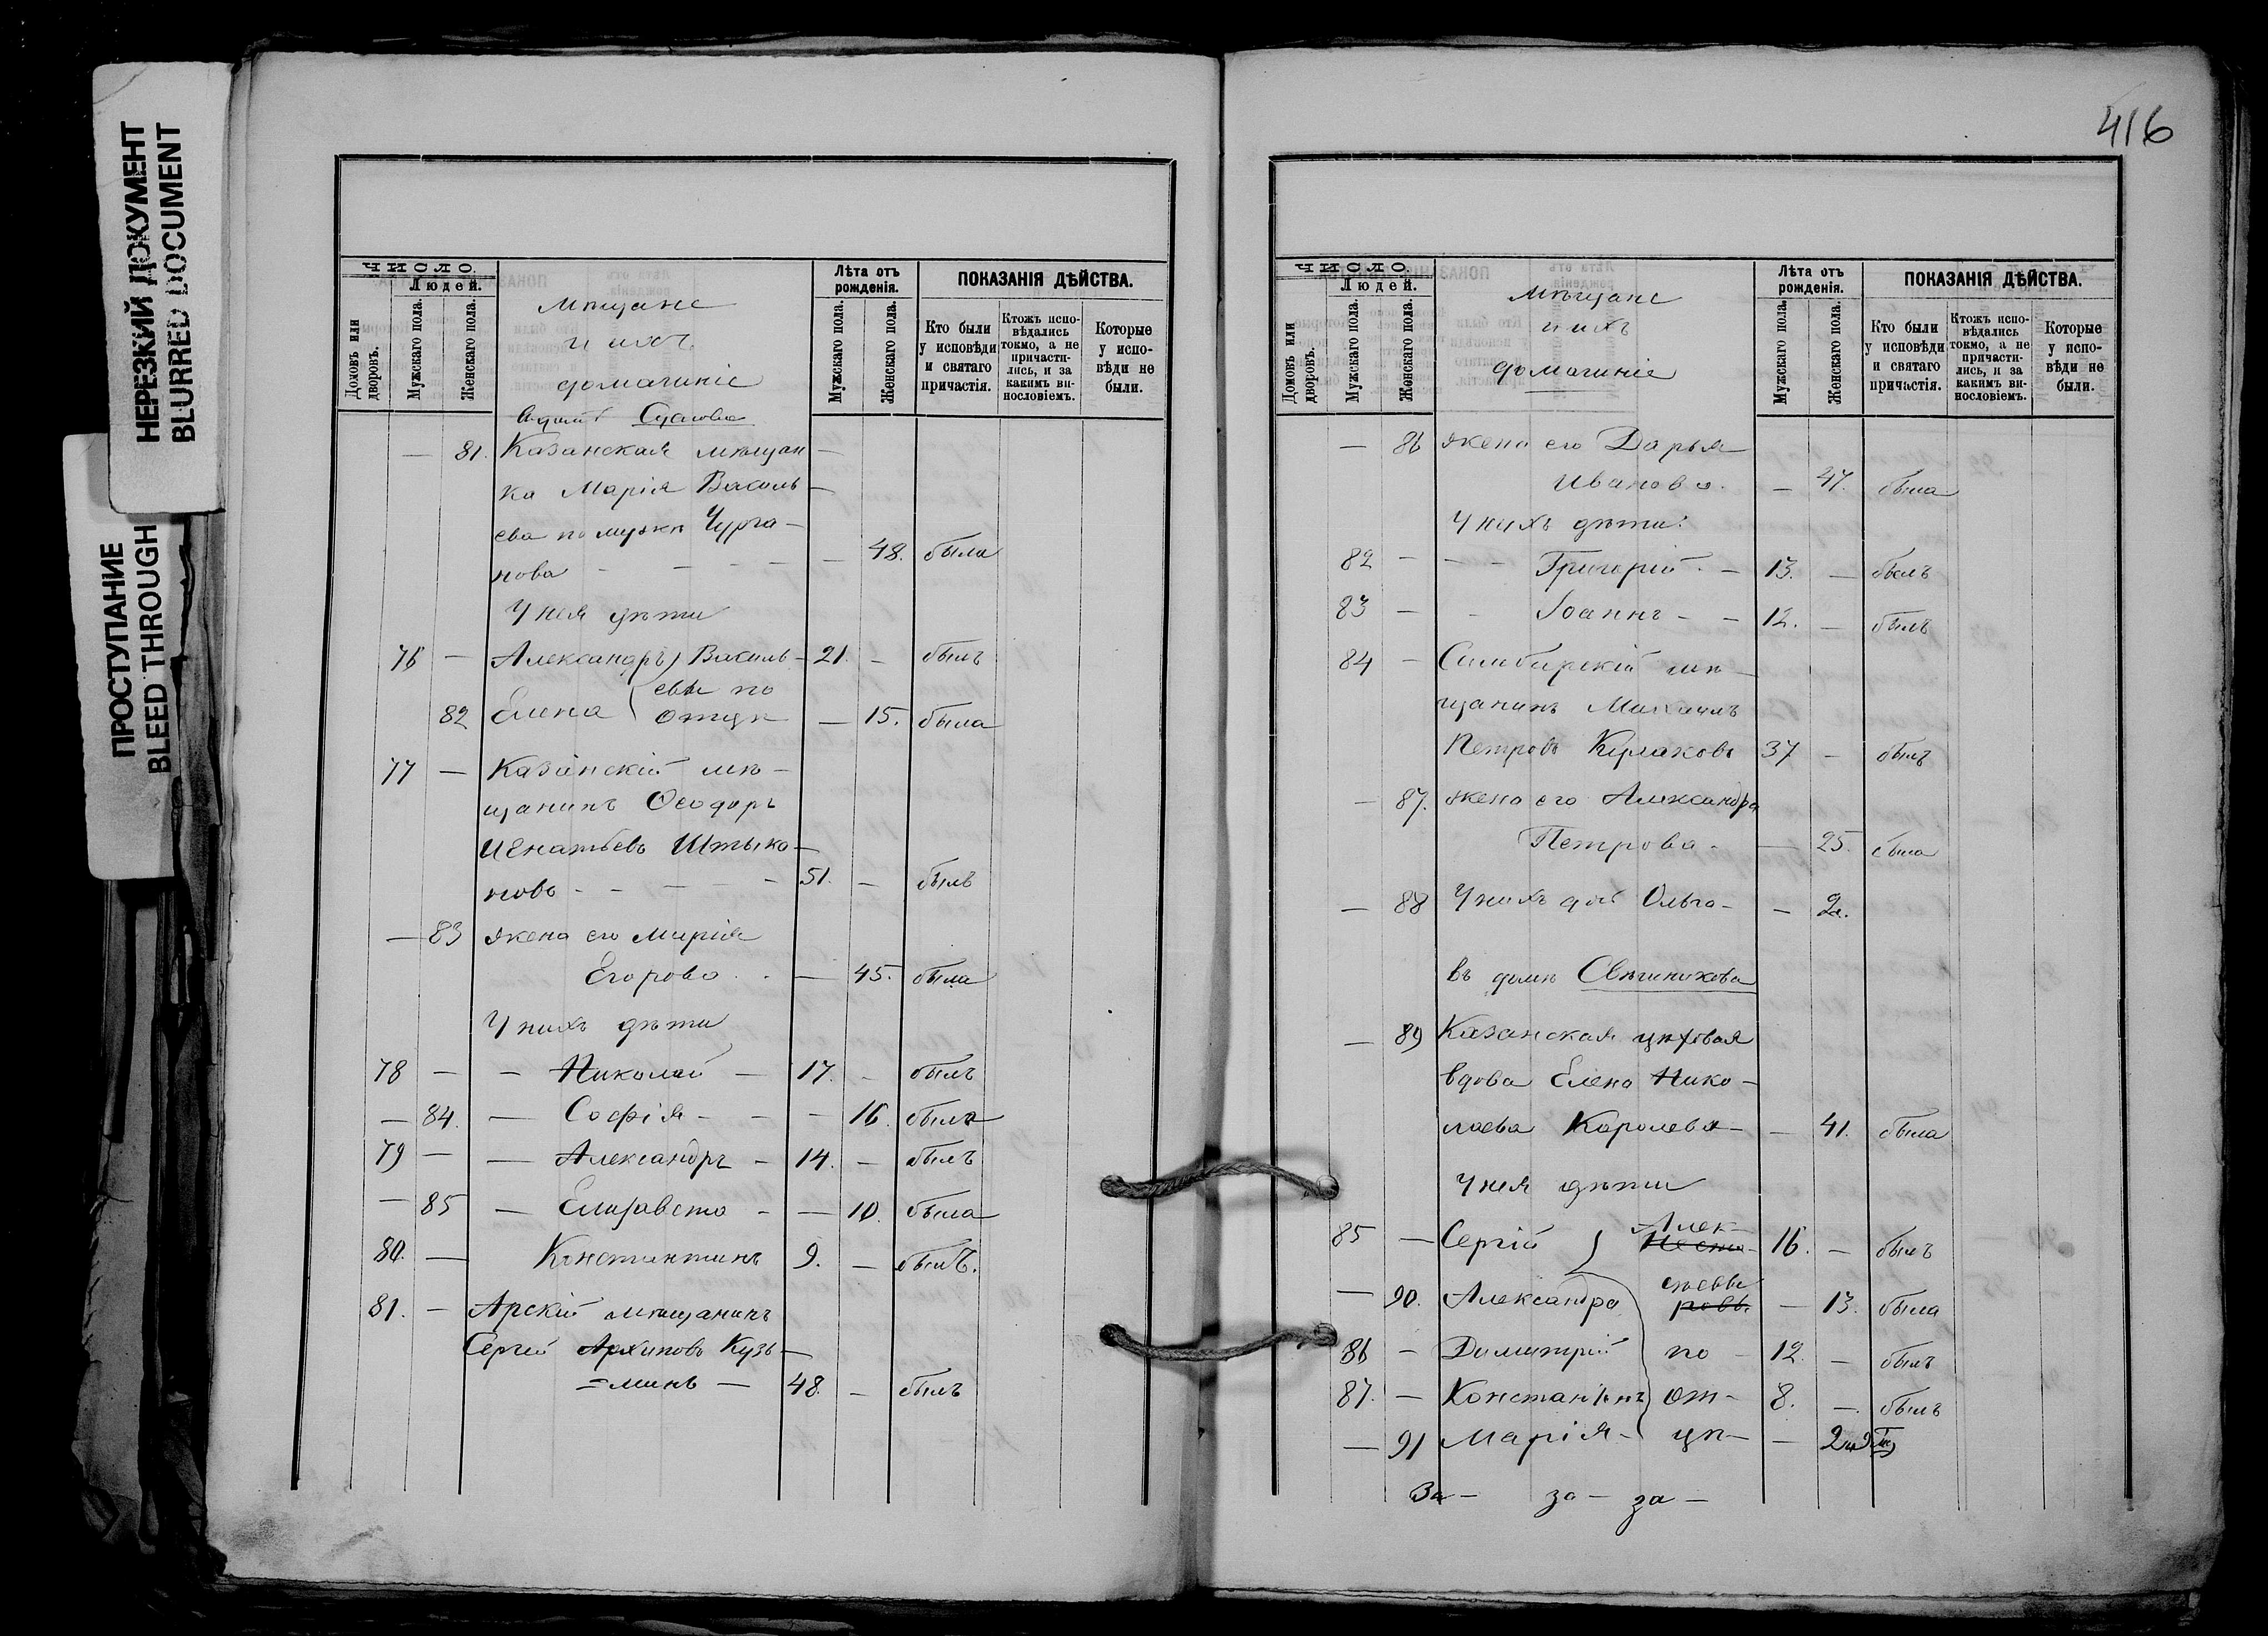 НЕРЕЗКИЙ ДОКУМЕНТ
BLURRED DOCUMENT
ПРОСТУПАНИЕ
BLEED THROUGH
ЧИСЛО.
Людей.
Домовъ или дворовъ.
Мужскаго пола.
Женскаго пола.
Мѣщане
и ихъ
домашніе
Лѣта отъ рожденія.
Мужскаго пола.
Женскаго пола.
ПОКАЗАНІЯ ДѢЙСТВА.
Кто были у исповѣди и святаго причастія.
Ктожъ испо-вѣдались токмо, а не причасти-лись, и за какимъ ви-нословіемъ.
Которые у испо-вѣди не были.
— 81. Казанская мѣщан —
ка Марія Василь —
ева по мужѣ Чурга —
нова - - - - — 48. была
У нея дѣти
76 — Александръ) Василь — 21. - былъ
евы по
82 Елена отцѣ — 15. была
77 — Казанскій мѣ —
щанинъ Ѳеодоръ
Игнатьевъ Штыко —
новъ - - - - 51. — былъ
— 83 жена его Марія
Егорова . . — 45. была
У нихъ дѣти
78 — - Николай — 17. - былъ
— 84. — Софія - - - 16. была
79 — — Александръ - 14. — былъ
— 85 — Елизавета - — 10. была
80. — Константинъ 9. — былъ.
81. - Арскій мѣщанинъ
Сергѣй Архиповъ Кузь —
= минъ — 48. — былъ
416
ЧИСЛО.
Людей.
Домовъ или дворовъ.
Мужскаго пола.
Женскаго пола.
Мѣщане
и ихъ
домашніе
Лѣта отъ рожденія.
Мужскаго пола.
Женскаго пола.
ПОКАЗАНІЯ ДѢЙСТВА.
Кто были у исповѣди и святаго причастія.
Ктожъ испо-вѣдались токмо, а не причасти-лись, и за какимъ ви-нословіемъ.
Которые у испо-вѣди не были.
— 86 жена его Дарья
Иванова. — 47. была
У нихъ дѣти:
82 - - - Григорій. - 13. — былъ
83 - - Іоаннъ - - 12. — былъ
84 - Симбирскій мѣ —
щанинъ Михаилъ
Петровъ Кулаковъ 37 — былъ
— 87. жена его Александра
Петрова. — 25. была
— 88 У нихъ доч Ольга - — 2.
въ домѣ Свѣшникова
— 89 Казанская цѣховая
вдова Елена Нико —
лаева Королева — — 41. была
У нея дѣти
85 — Сергій ) Алек- 16. — былъ
— 90. Александра сѣевы — 13. была
86 - Димитрій по - 12. — былъ
87. - Константинъ от - 8. — былъ
— 91 Марія - цѣ — — 2
За — за — за —